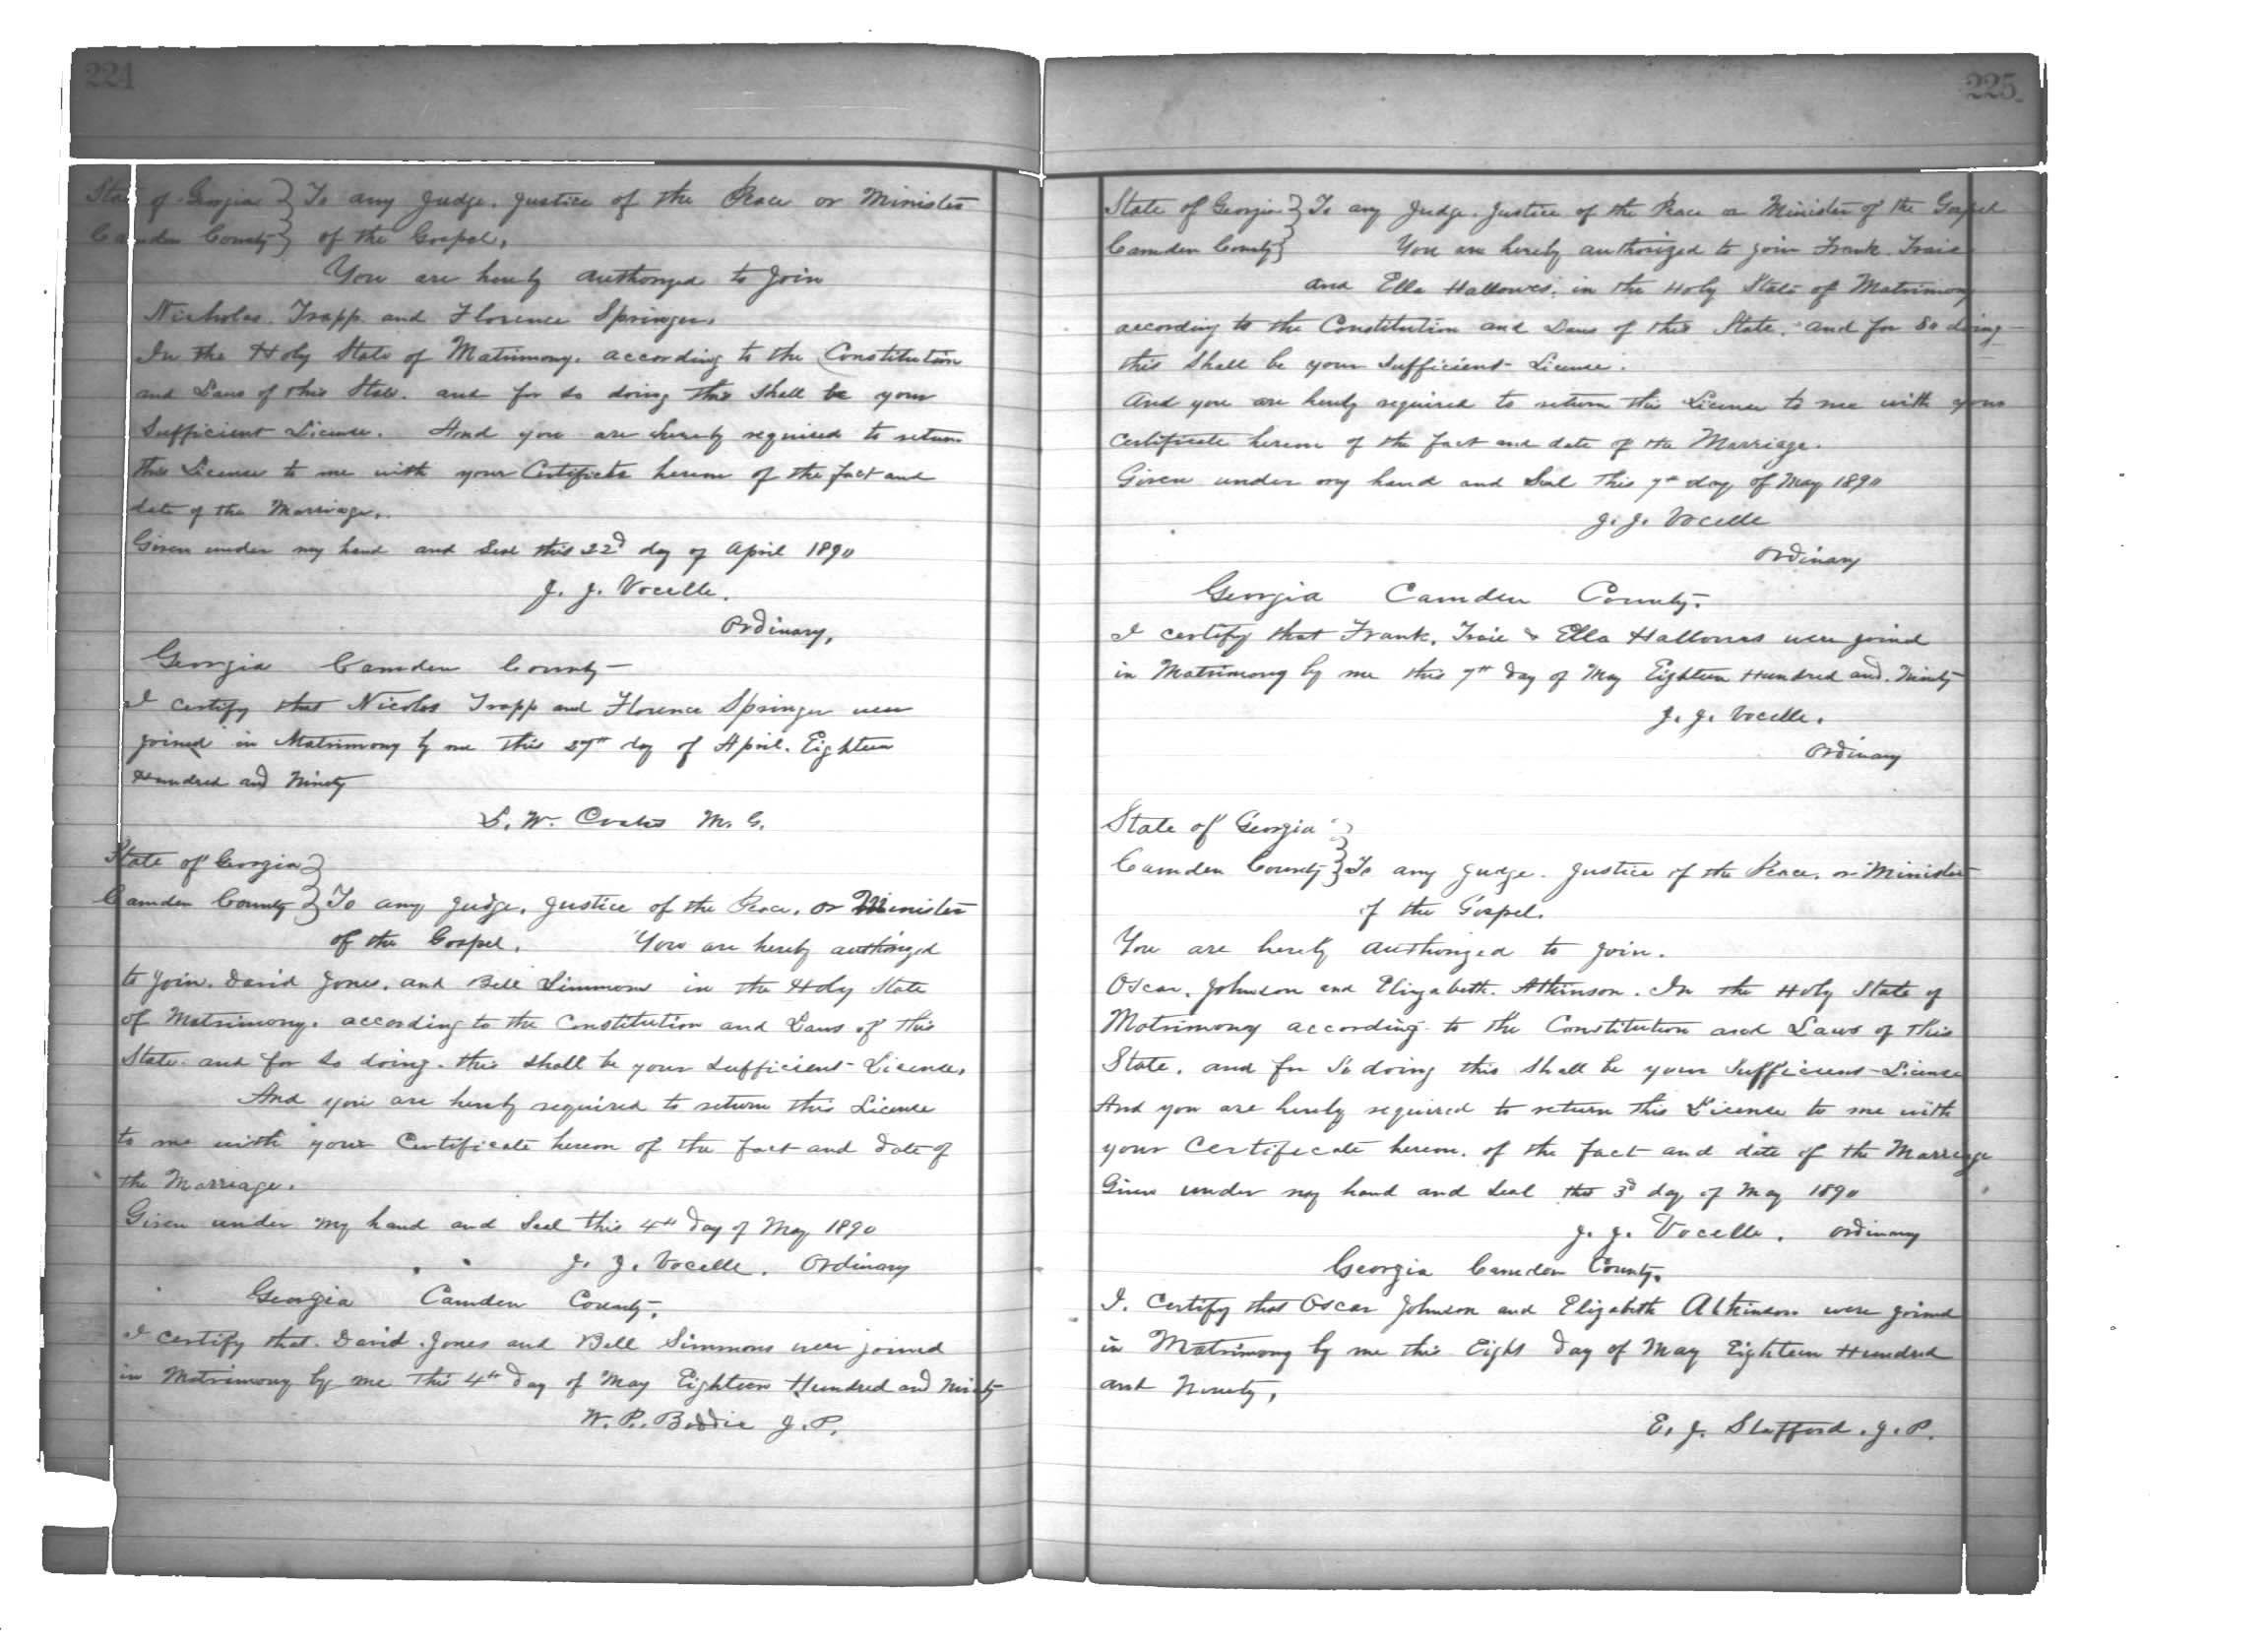 224
State of Georgia } To any Judge. Justice of the Peace or Minister
Camden County } of the Gospel,
You are hereby authorized to Join
Nicholas Trapp and Florence Springer.
In the Holy State of Matrimony. according to the Constitution
and Laws of this State. and for so doing this shall be your
Sufficient License. And you are hereby required to return
this License to me with your Certificate hereon of the fact and
date of the Marriage.
Given under my hand and Seal this 22d day of April 1890
J. J. Vocelle.
Ordinary,
Georgia Camden County
I certify that Nicolos Trapp and Florence Springer were
joined in Matrimony by me this 27th day of April. Eighteen
Hundred and Ninety
S. W. M. G.
State of Georgia }
Camden County } To any Judge, Justice of the Peace, or Minister
of the Gospel. You are hereby authorized
to join. David Jones. and Bell Simmons in the Holy State
of Matrimony. according to the Constitution and Laws of this
State. and for so doing. this shall be your sufficient License,
And you are hereby required to return this License
to me with your Certificate hereon of the fact and date of
the Marriage.
Given under my hand and Seal this 4th day of May 1890
J. J. Vocelle. Ordinary
Georgia Camden County.
I certify that. David Jones and Bell Simmons were joined
in Matrimony by me This 4th day of May Eighteen Hundred and Ninety
W. P. Boddie J. P.
225
State of Georgia } To any Judge. Justice of the Peace or Minister of the Gospel
Camden County } You are hereby authorized to join Frank
and Ella Hallowes. in the Holy State of Matrimony
according to the Constitution and Laws of this State. and for so doing
this shall be your Sufficient License.
And you are hereby required to return this License to me with your
Certificate hereon of the fact and date of the Marriage.
Given under my hand and Seal This 7th day of May 1890
J. J. Vocelle
Ordinary
Georgia Camden County.
I certify that Frank. & Ella Hallowes were joined
in Matrimony by me this 7th day of May Eighteen Hundred and Ninety
J. J. Vocelle.
Ordinary
State of Georgia }
Camden County } To any Judge. Justice of the Peace. or Minister
of the Gospel.
You are hereby authorized to join.
Oscar. Johnson and Elizabeth. Atkinson. In the Holy State of
Matrimony according to the Constitution and Laws of this
State. and for so doing this shall be your Sufficient License
And you are hereby required to return this License to me with
your Certificate hereon. of the fact and date of the Marriage
Given under my hand and Seal this 3d day of May 1890
J. J. Vocelle. Ordinary
Georgia Camden County.
I. Certify that Oscar Johnson and Elizabeth Atkinson were joined
in Matrimony by me this Eight day of May Eighteen Hundred
and Ninety,
E. J. Stafford. J. P.